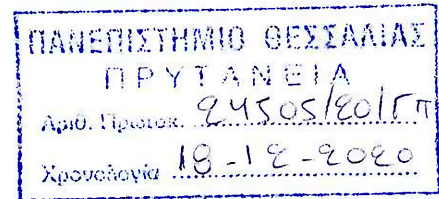 ΠΑΝΕΠΙΣΤΗΜΙΟ ΘΕΣΣΑΛΙΑΣ
ΠΡΥΤΑΝΕΙΑ
Αριθ. Πρωτοκ. 24505/20/ΓΠ
Χρονολογία 18-12-2020